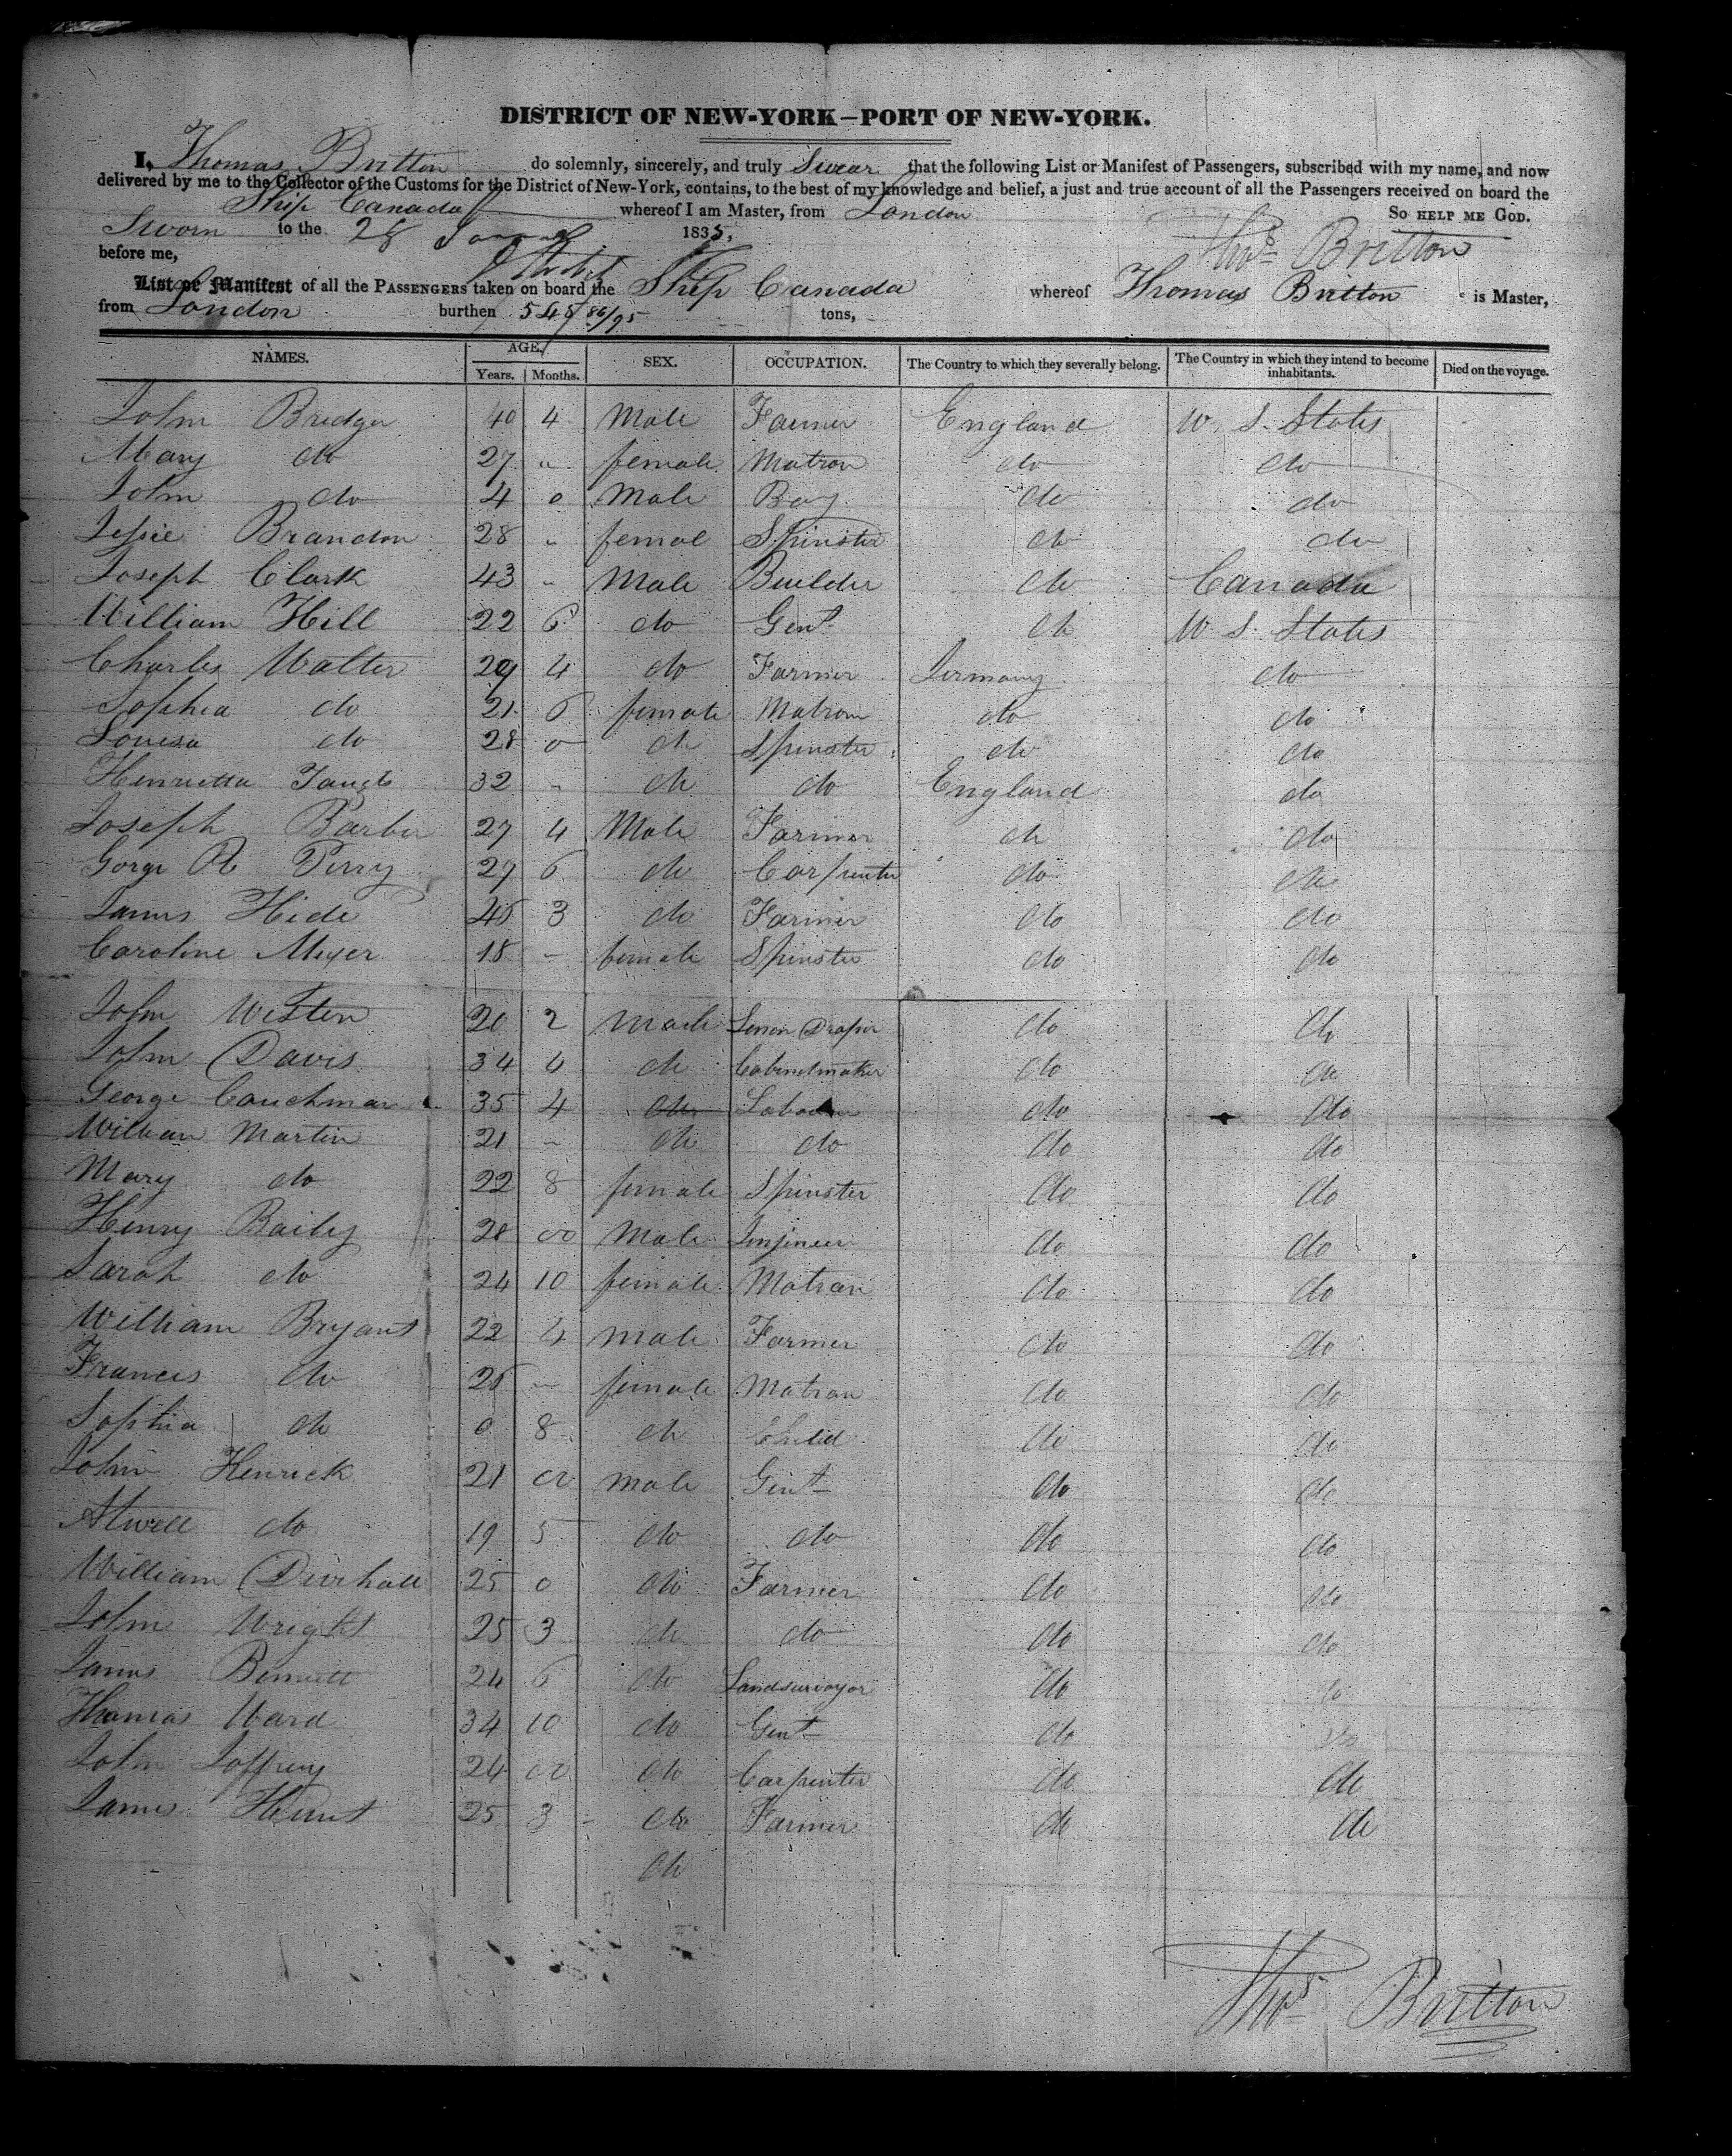 DISTRICT OF NEW-YORK—PORT OF NEW-YORK.
I, Thomas Britton do solemnly, sincerely, and truly Swear that the following List or Manifest of Passengers, subscribed with my name, and now
delivered by me to the Collector of the Customs for the District of New-York, contains, to the best of my knowledge and belief, a just and true account of all the Passengers received on board the
Ship Canada whereof I am Master, from London So HELP ME GOD.
Sworn to the 28 1835, Thos Britton
before me,
List or Manifest of all the PASSENGERS taken on board the Ship Canada whereof Thomas Britton is Master,
from London burthen 545 86/95 tons,
NAMES. AGE. SEX. OCCUPATION. The Country to which they severally belong. The Country in which they intend to become inhabitants. Died on the voyage.
Years. Months.
John Bridger 40 4 Male Farmer England U. S. States
Mary do 27 " female Matron do do
John do 4 0 Male Boy do do
Jessie Brandon 28 " femal Spinster do do
Joseph Clark 43 - Male Builder do Canada
William Hill 22 6 do Gent do U. S. States
Charles Walter 29 4 do Farmer Jermany do
Sophia do 21 6 female Matron do do
Louisa do 28 0 do Spinster do do
Henrietta 32 - do do England do
Joseph Barber 27 4 Male Farmer do do
Gorge R Perry 27 6 do Carpenter do do
James Hide 45 3 do Farmer do do
Caroline Meyer 18 - female Spinster do do
John Westen 20 2 Male Linen Draper do do
John Davis 34 4 do Cabinetmaker do do
George Couchman 35 4 do do do
William Martin 21 - do do do do
Mary do 22 8 female Spinster do do
Henry Baily 28 00 Male Injineer do do
Sarah do 24 10 female Matran do do
William Bryant 22 4 male Farmer do do
Frances do 26 - female Matran do do
Sophia do 0 8 do Child do do
John Henrick 21 00 male Gent do do
Atwell do 19 5 do do do do
William 25 0 do Farmer do do
John Wright 25 3 do do do do
James Bennett 24 6 do Landsurvayor do do
Thomas Ward 34 10 do Gent do do
John Joffrey 24 00 do Carpenter do do
James Hunt 25 3 - do Farmer do do
do
Thos Britton